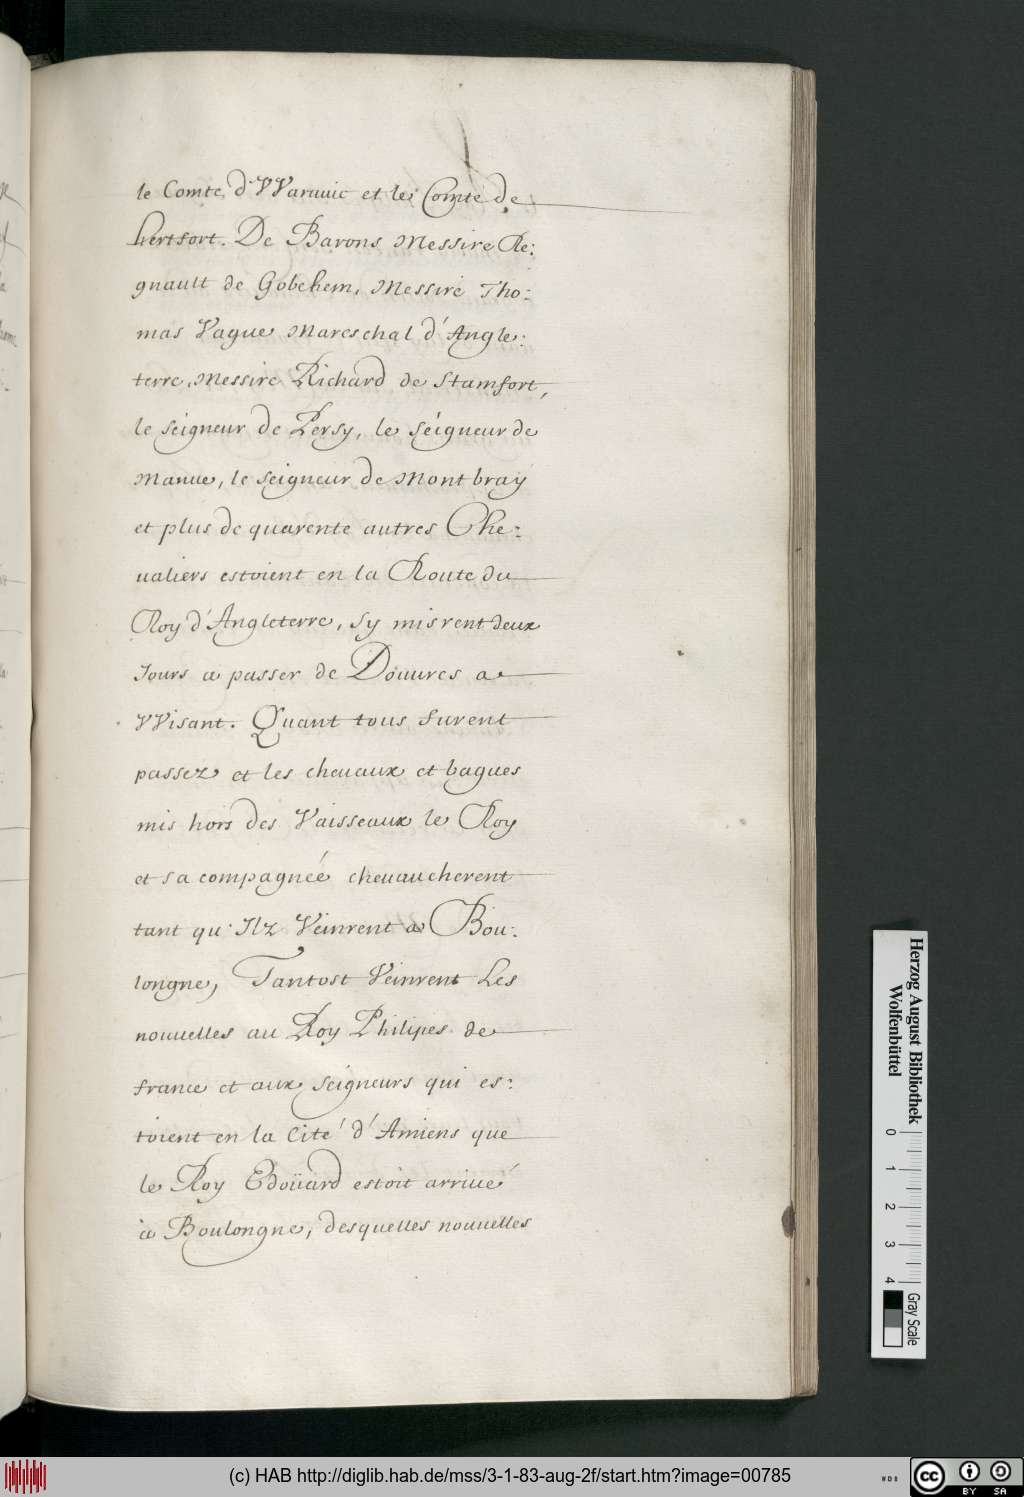 le Comte d'VVaruuic et le Comte de
hertfort. De Barons Messire Re:
gnault de Gobehem, Messire Tho:
mas Vague Mareschal d'Angle:
terre, Messire Richard de Stamfort,
le seigneur de Persy, le seigneur de
Manue, le seigneur de Montbray
et plus de quarente autres Che:
ualiers estoient en la Route du
Roy d'Angleterre, sy misrent deux
Jours a passer de Douures a
VVisant. Quant tous furent
passez et les cheuaux et bagues
mis hors des Vaisseaux le Roy
et sa compagnée cheuaucherent
tant qu'Ilz Veinrent a Bou:
longne, Tantost Veinrent Les
nouuelles au Roy Philipes de
france et aux seigneurs qui es:
toient en la Cité d'Amiens que
le Roy Edoüard estoit arriué
à Boulongne, desquelles nouuelles
Herzog August Bibliothek
Wolfenbüttel
0 1 2 3 4
Gray Scale
(c) HAB http://diglib.hab.de/mss/3-1-83-aug-2f/start.htm?image=00785
WDB
cc BY SA